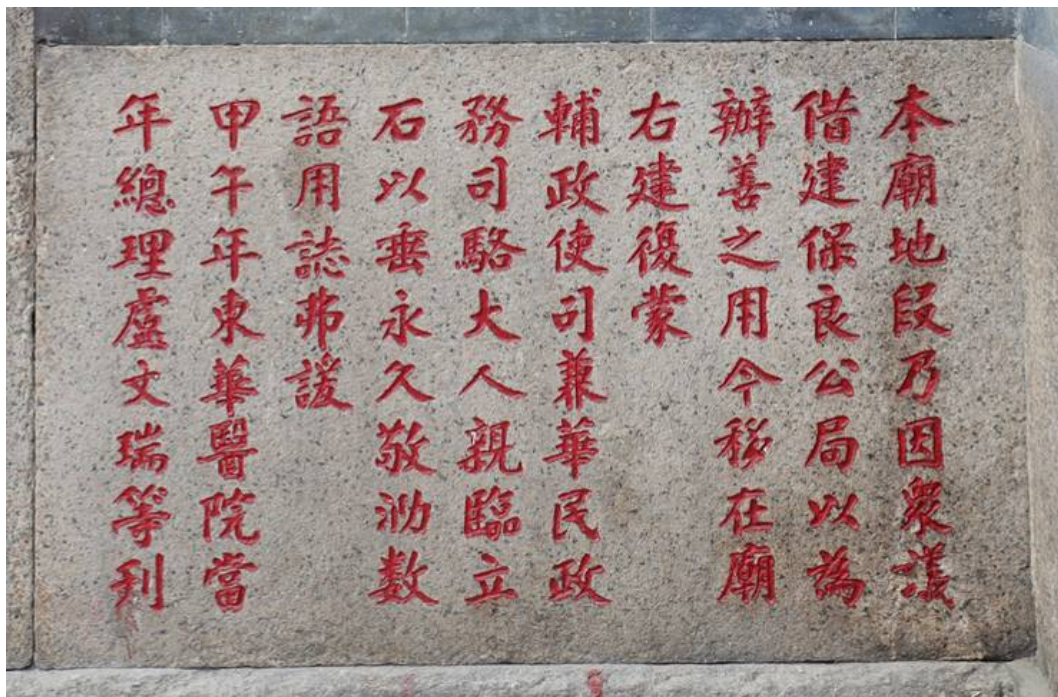 本廟地段乃因衆議
借建保良公局以為
辦善之用今移在廟
右建復蒙
輔政使司兼華民政
務司駱大人親臨立
石以垂永久敬泐数
語用誌弗諼
甲午年東華醫院當
年總理盧文瑞等刊